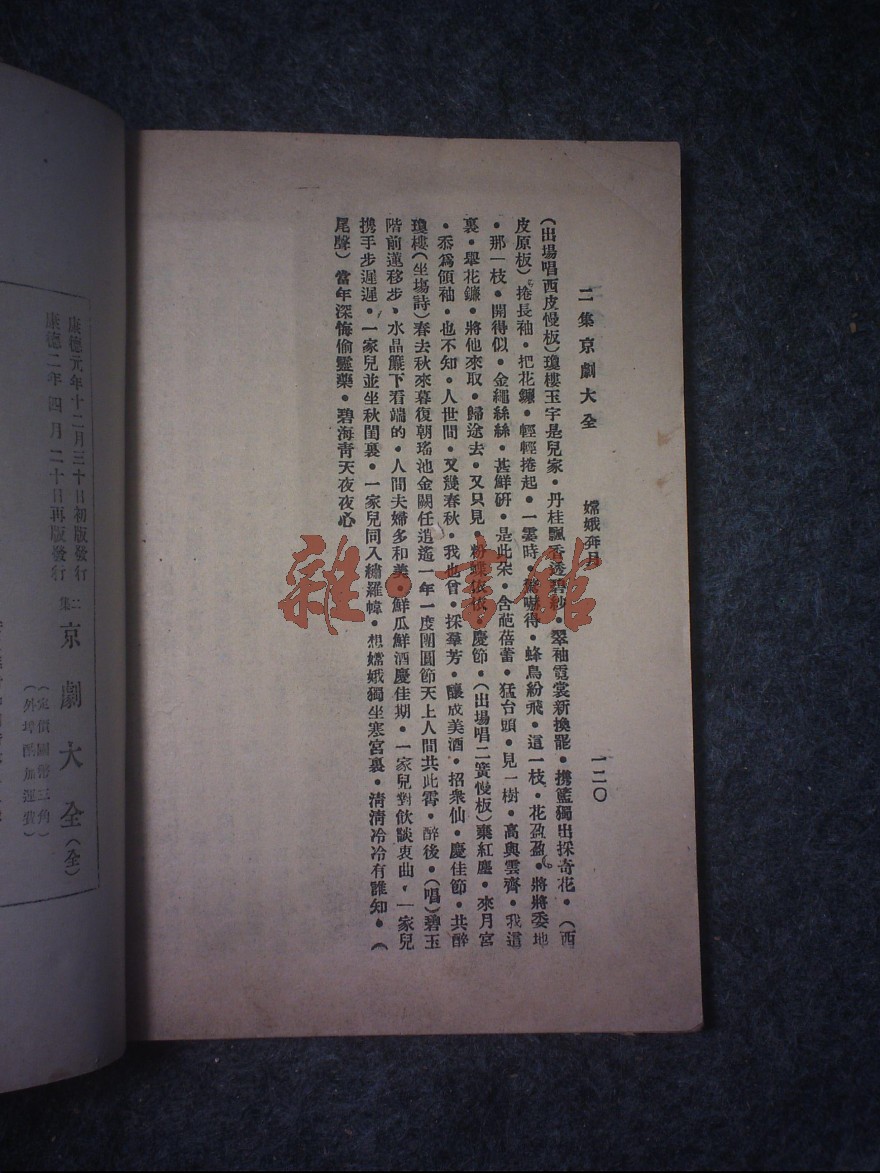 二集京劇大全　嫦娥奔月　一二〇
(出場唱西皮慢板)瓊樓玉宇是兒家·丹桂飄香透碧紗·翠袖霓裳新換罷·携籃獨出採奇花·(西
皮原板)捲長袖·把花鐮·輕輕捲起·一霎時·驚嚇得·蜂鳥紛飛·這一枝·花盈盈·將將委地
·那一枝·開得似·金繩絲絲·甚鮮研·是此朵·含葩蓓蕾·猛台頭·見一樹·高與雲齊·我這
裏·舉花鐮·將他來取·歸途去·又只見·粉蝶依依·慶節·(出塲唱二簧慢板)棄紅塵·來月宮
·忝爲領袖·也不知·人世間·又幾春秋·我也曾·採羣芳·釀成美酒·招衆仙·慶佳節·共醉
瓊樓(坐塲詩)春去秋來暮復朝瑤池金闕任逍遙一年一度團圓節天上人間共此霄·醉後·(唱)碧玉
階前蓮移步·水晶簾下看端的·人間夫婦多和美·鮮瓜鮮酒慶佳期·一家兒對飲談衷曲·一家兒
携手步遲遲·一家兒並坐秋閨裏·一家兒同入繡羅幃·想嫦娥獨坐寒宮裏·淸淸冷冷有誰知·(
尾聲)當年深悔偷靈藥·碧海靑天夜夜心
康德元年十二月三十日初版發行
康德二年四月二十日再版發行
二集京劇大全(全)
(定價國幣三角)
(外埠酌加運費)
雜·書館